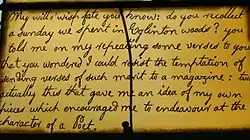 My will o' wisp fate you know: do you recollect
a Sunday we spent in Eglinton woods? you
told me on my repeating some verses to you
that you wondered I could resist the temptation of
sending verses of such merit to a magazine: 
actually this that gave me an idea of my own
pieces which encouraged me to endeavour at the
character of a Poet.